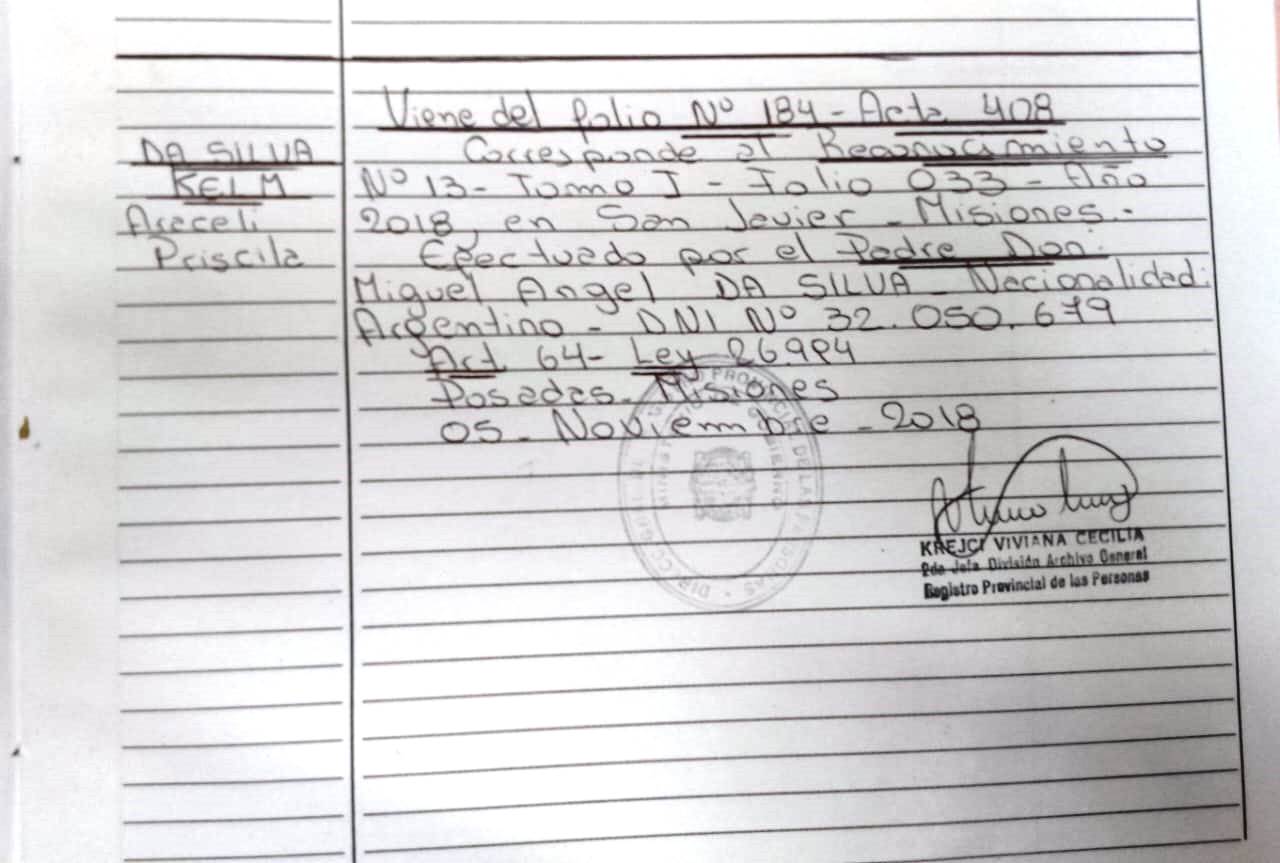 Viene del folio Nº 184 - Acta 408
DA SILVA
KELM
Araceli
Priscila
Corresponde al Reconocimiento
Nº 13 - Tomo I - Folio 033 - Año
2018, en San Javier - Misiones.-
Efectuado por el Padre Don:
Miguel Angel DA SILVA - Nacionalidad:
Argentino - DNI Nº 32.050.679
Art 64 - Ley 26.994
Posadas - Misiones
05 - Noviembre - 2018
KREJCI VIVIANA CECILIA
2da Jefa División Archivo General
Registro Provincial de las Personas